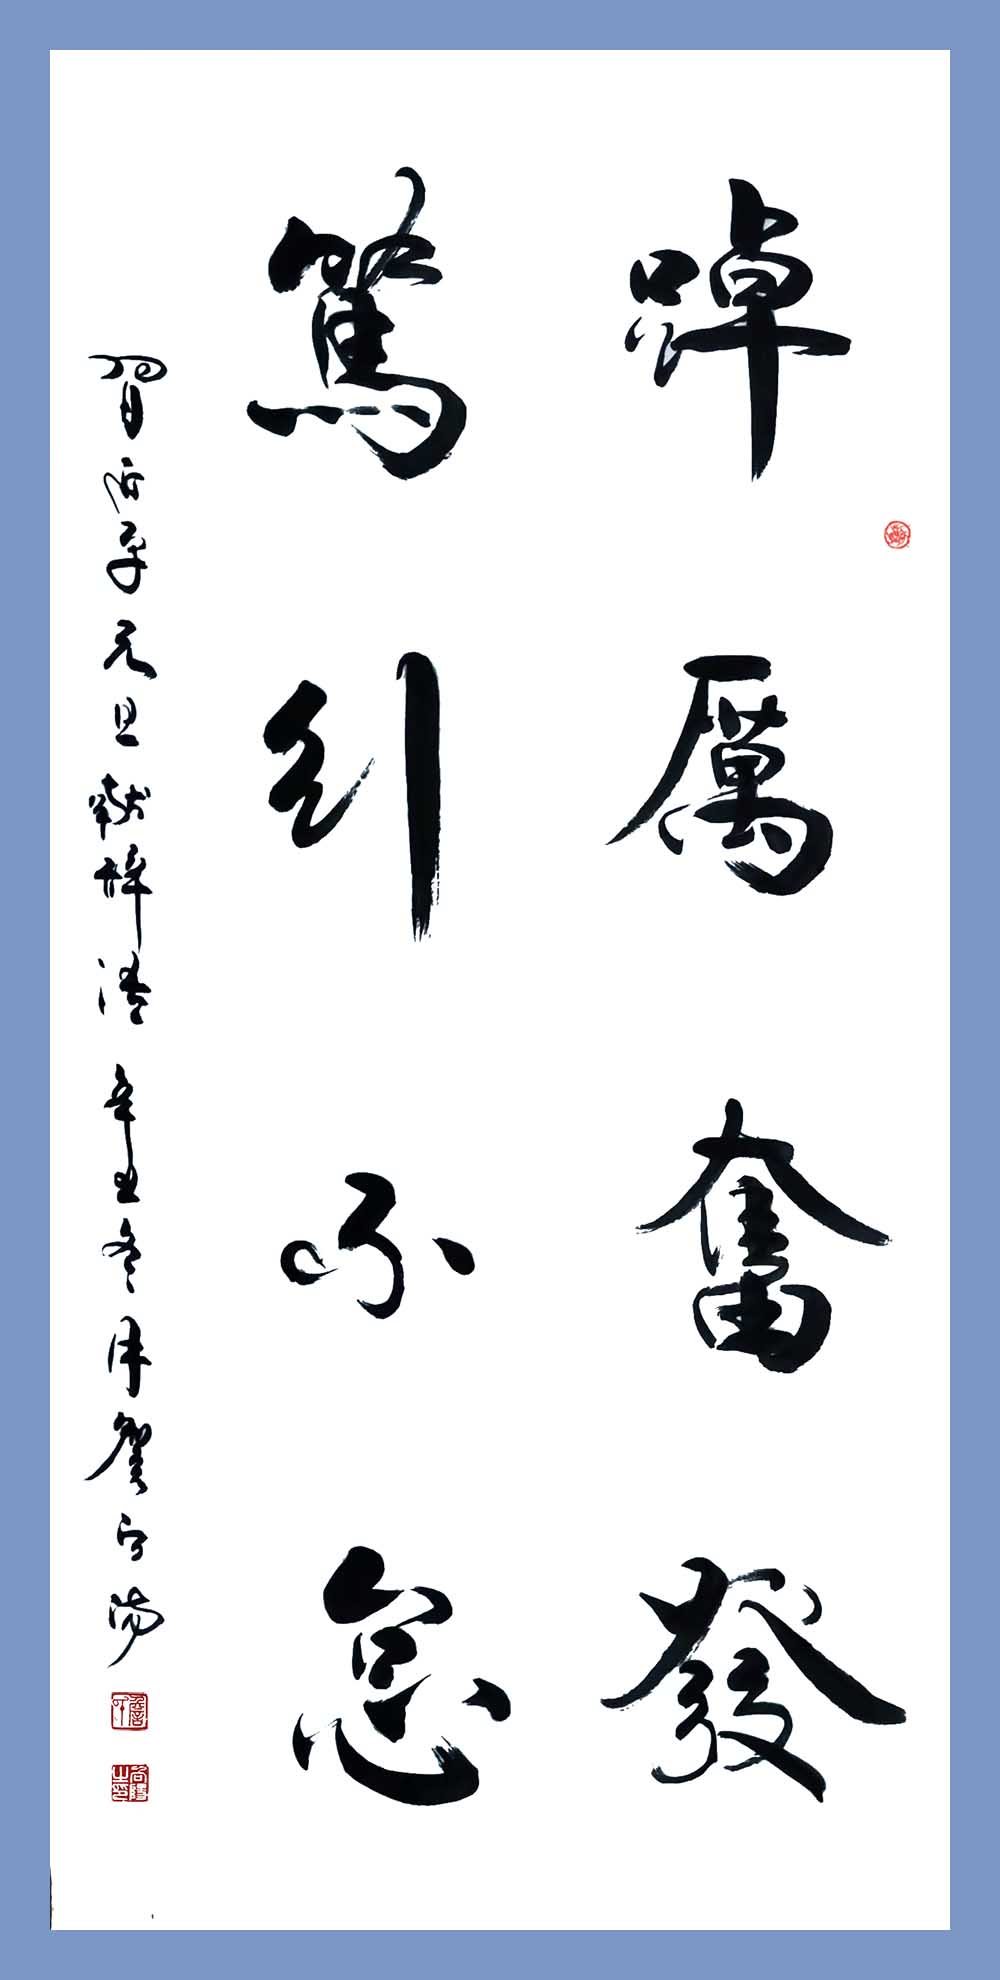 踔厲奮發
篤行不怠
習近平元旦獻辭 辛丑冬月